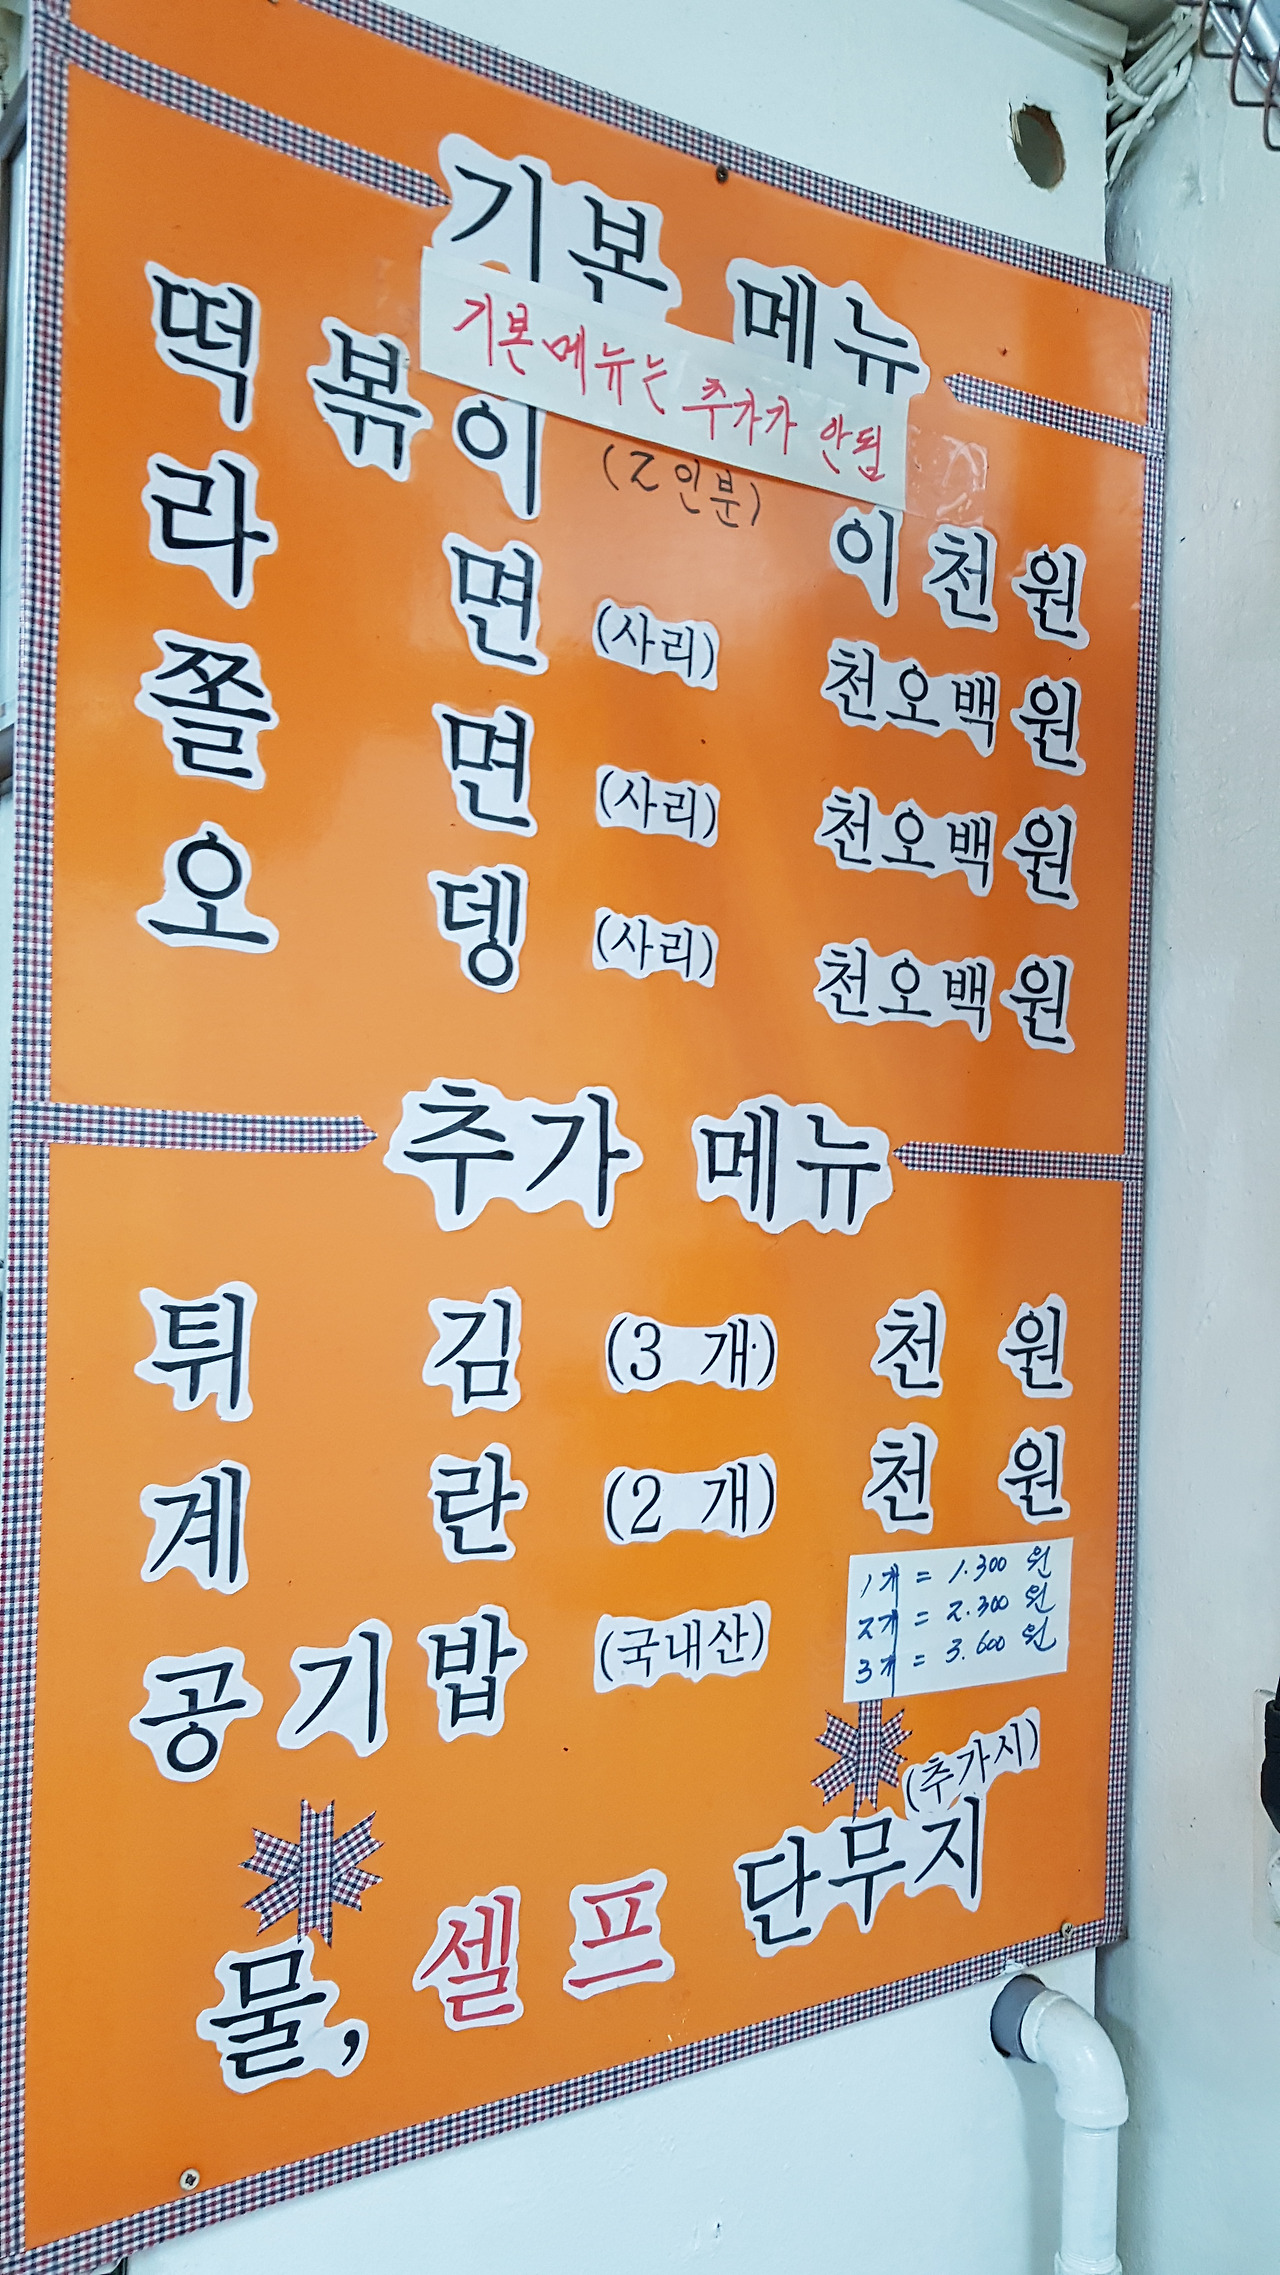 기본 메뉴
기본메뉴는 추가가 안됨
떡볶이 (2인분) 이천원
라면 (사리) 천오백원
쫄면 (사리) 천오백원
오뎅 (사리) 천오백원
추가 메뉴
튀김 (3 개) 천원
계란 (2 개) 천원
공기밥 (국내산)
1개 = 1.300 원
2개 = 2.300 원
3개 = 3.600 원
(추가시)
물, 셀프 단무지